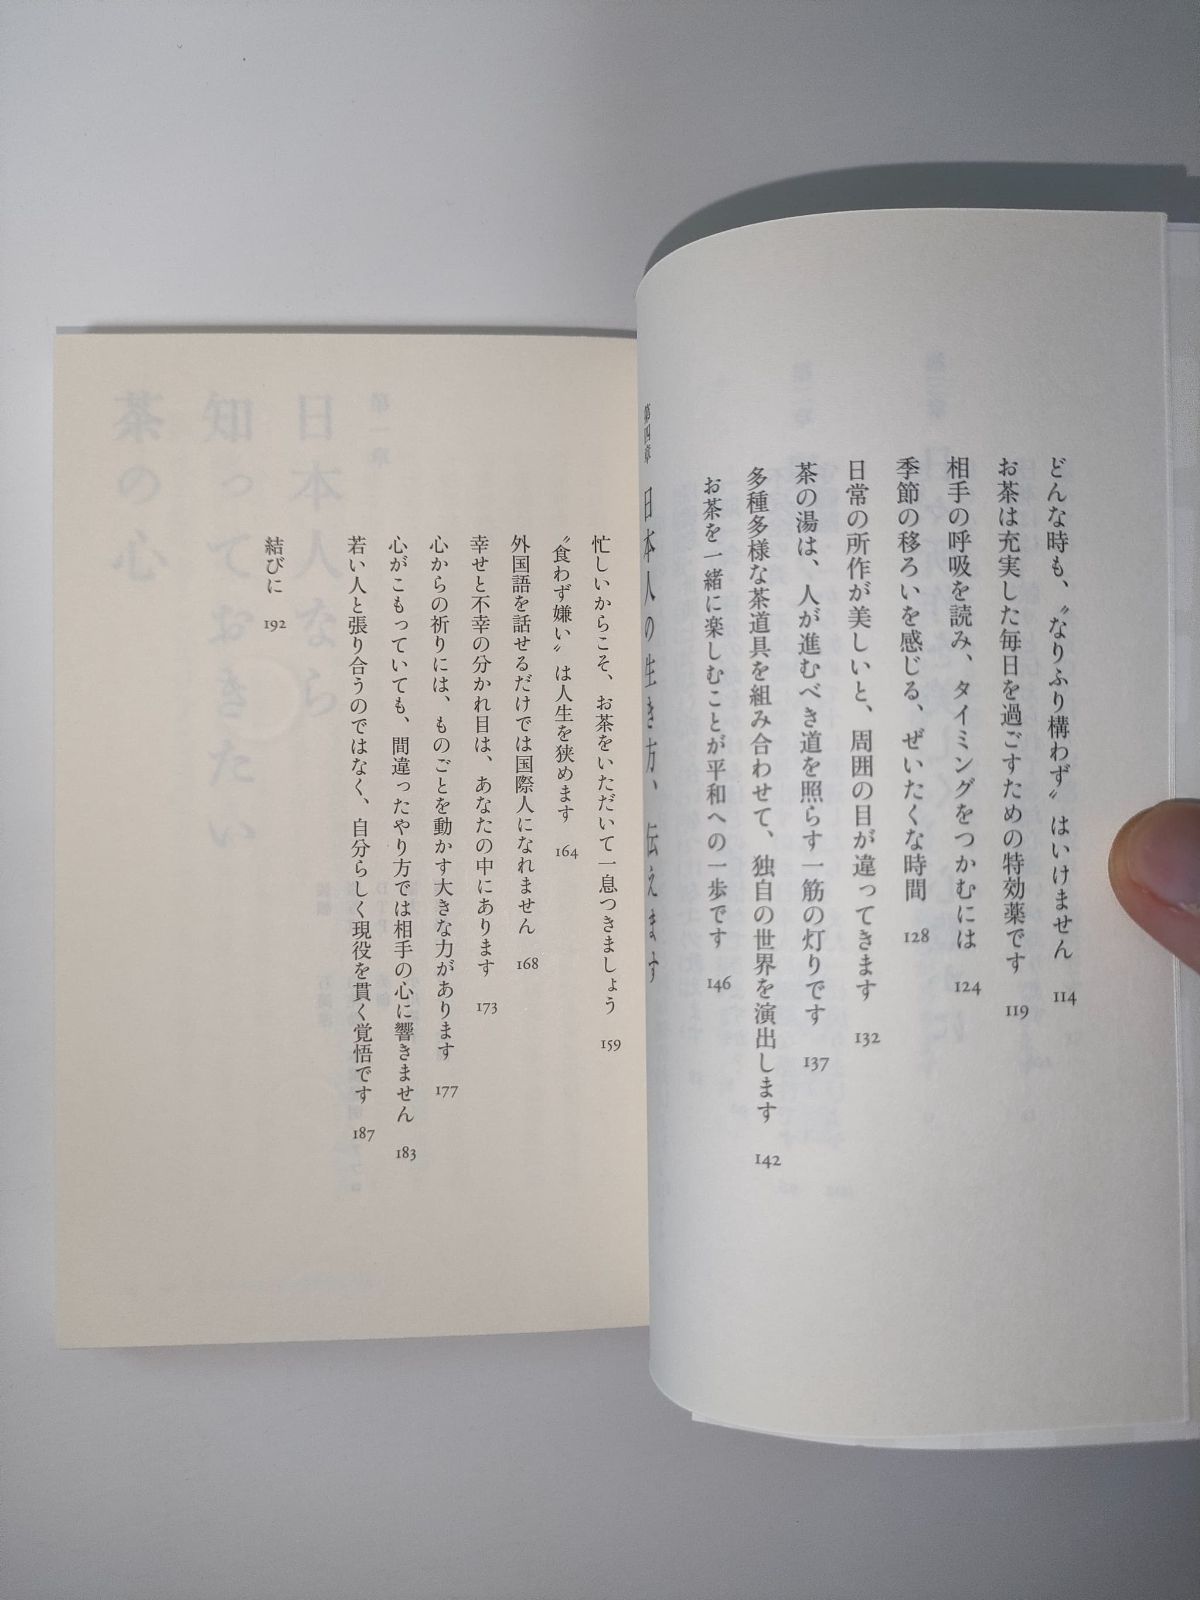 どんな時も、〝なりふり構わず〟はいけません 114
お茶は充実した毎日を過ごすための特効薬です 119
相手の呼吸を読み、タイミングをつかむには 124
季節の移ろいを感じる、ぜいたくな時間 128
日常の所作が美しいと、周囲の目が違ってきます 132
茶の湯は、人が進むべき道を照らす一筋の灯りです 137
多種多様な茶道具を組み合わせて、独自の世界を演出します 142
お茶を一緒に楽しむことが平和への一歩です 146
第四章 日本人の生き方、伝えます
忙しいからこそ、お茶をいただいて一息つきましょう 159
〝食わず嫌い〟は人生を狭めます 164
外国語を話せるだけでは国際人になれません 168
幸せと不幸の分かれ目は、あなたの中にあります 173
心からの祈りには、ものごとを動かす大きな力があります 177
心がこもっていても、間違ったやり方では相手の心に響きません 183
若い人と張り合うのではなく、自分らしく現役を貫く覚悟です 187
結びに 192
第一章
日本人なら
知っておきたい
茶の心